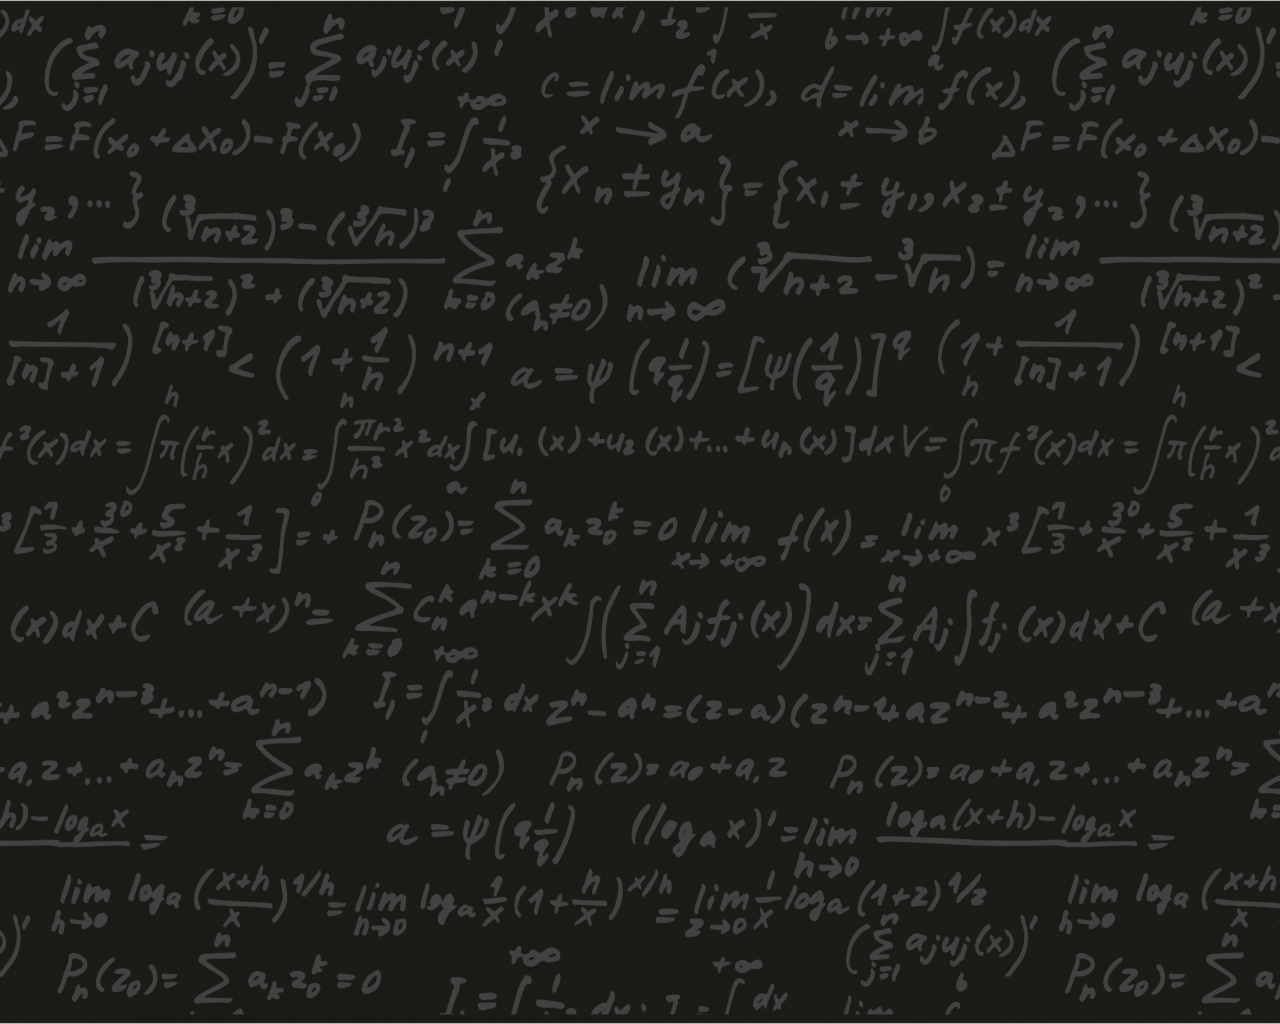 )dx k=0 x
(∑ⁿⱼ₌₁ aⱼuⱼ(x))' = ∑ⁿⱼ₌₁ aⱼuⱼ'(x) lim b→+∞ ∫ₐ f(x)dx k=0
c = lim f(x), x→a d = lim f(x), x→b (∑ⁿⱼ₌₁ aⱼuⱼ(x))'
ΔF = F(x₀ + Δx₀) − F(x₀) I₁ = ∫₁^{+∞} 1/x³ ΔF = F(x₀ + Δx₀) −
y₂, ... } {xₙ ± yₙ} = {x₁ ± y₁, x₂ ± y₂, ... }
lim n→∞ ((∛n+2)³ − (∛n)³)/((∛n+2)² + (∛n+2)) ∑ⁿₖ₌₀ aₖzᵏ (aₙ≠0) lim n→∞ (∛n+2 − ∛n) = lim n→∞ (∛n+2) / (∛n+2)²
1/([n]+1)) [n+1] < (1 + 1/n) n+1 a = ψ(q 1/q) = [ψ(1/q)]^q (1 + 1/([n]+1)) [n+1] <
f²(x)dx = ∫ʰ π(r/h x)²dx = ∫₀ʰ πr²/h² x²dx ∫ₐˣ [u₁(x)+u₂(x)+...+uₙ(x)]dx V = ∫₀ πf²(x)dx = ∫ʰ π(r/h x)²
³[1/3 + 3⁰/x + 5/x² + 1/x³] = + Pₙ(z₀) = ∑ⁿₖ₌₀ aₖz₀ᵏ = 0 lim x→+∞ f(x) = lim x→+∞ x³[1/3 + 3⁰/x + 5/x² + 1/x³
(x)dx+C (a+x)ⁿ = ∑ⁿₖ₌₀ Cₙᵏaⁿ⁻ᵏxᵏ ∫(∑ⁿⱼ₌₁ Aⱼfⱼ(x))dx = ∑ⁿⱼ₌₁ Aⱼ∫fⱼ(x)dx+C (a+x
+ a²zⁿ⁻³+...+aⁿ⁻¹) I₁ = ∫₁^{+∞} 1/x³ dx zⁿ−aⁿ=(z−a)(zⁿ⁻¹+azⁿ⁻²+a²zⁿ⁻³+...+aⁿ
+a₁z+...+aₙzⁿ = ∑ⁿₖ₌₀ aₖzᵏ (aₙ≠0) Pₙ(z)=a₀+a₁z Pₙ(z)=a₀+a₁z+...+aₙzⁿ =
h)−logₐx = a = ψ(q 1/q) (logₐx)' = lim h→0 logₐ(x+h)−logₐx =
lim h→0 logₐ((x+h)/x)^{1/h} = lim h→0 logₐ 1/x (1+h/x)^{x/h} = lim z→0 1/x logₐ(1+z)^{1/z} lim h→0 logₐ((x+h)/x
)' Pₙ(z₀) = ∑ⁿ aₖz₀ᵏ = 0 (∑ⁿⱼ₌₁ aⱼuⱼ(x))' Pₙ(z₀) = ∑ⁿ a
I = ∫^{+∞} dx = ∫^{+∞} dx lim b